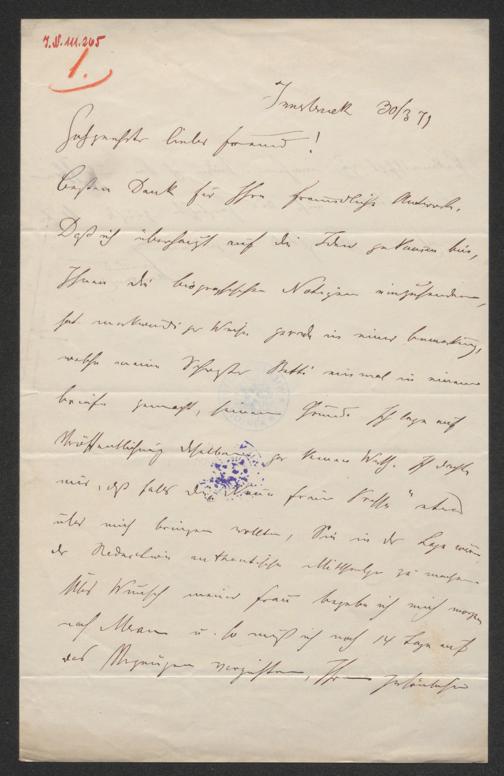 J.N. 111.265
1.
Innsbruck 30/3 71
Hochgeehrter lieber Freund!
Besten Dank für Ihre freundliche Antwort.
Daß ich überhaupt auf die Idee gekommen bin,
Ihnen die biographischen Notizen einzusenden,
hat merkwürdiger Weise gerade in einer Bemerkung,
welche meine Schwester Betti einmal in einem
Briefe gemacht, seinen Grund. Ich lege auf
Veröffentlichung derselben gar keinen Werth. Ich dachte
mir, daß falls die „Neue freie Presse" etwas
über mich bringen wollten, Sie in der Lage wären
der Redaction authentische Mittheilungen zu machen.
Wunsch meiner Frau begebe ich mich morgen
nach Meran u. so muß ich noch 14 Tage auf
das Vergnügen verzichten, Ihnen persönlich